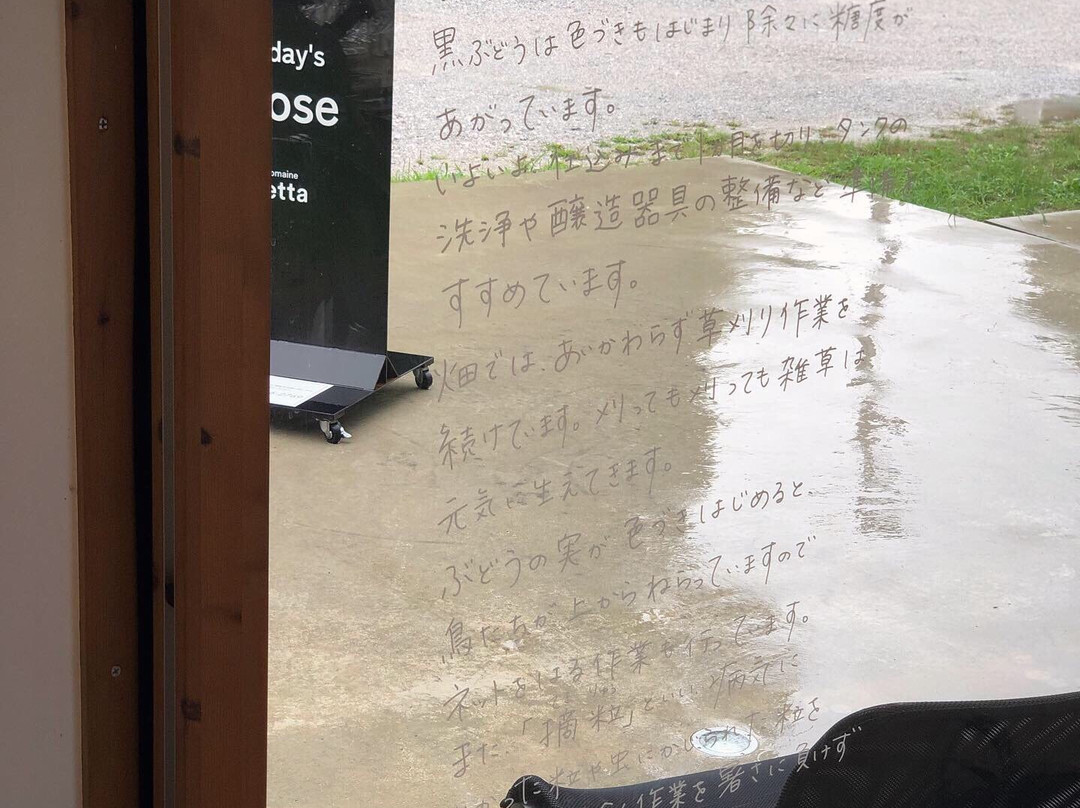 day's
ose
omaine
etta
黒ぶどうは色づきもはじまり除々に糖度が
あがっています。
いよいよ、仕込みまで1ヶ月を切り、タンクの
洗浄や醸造器具の整備など準備を
すすめています。
畑では、あいかわらず草刈り作業を
続けています。刈っても刈っても雑草は
元気に生えてきます。
ぶどうの実が色づきはじめると、
鳥たちが上からねらっていますので
ネットをはる作業も行っています。
また、「摘粒」といい、病気に
った粒や虫にかじられた粒を
作業を暑さに負けず